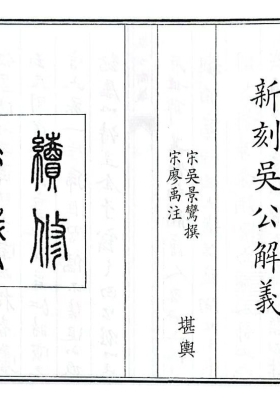 新刻吳公解義
宋吳景鸞撰
宋廖禹注
堪輿
續修